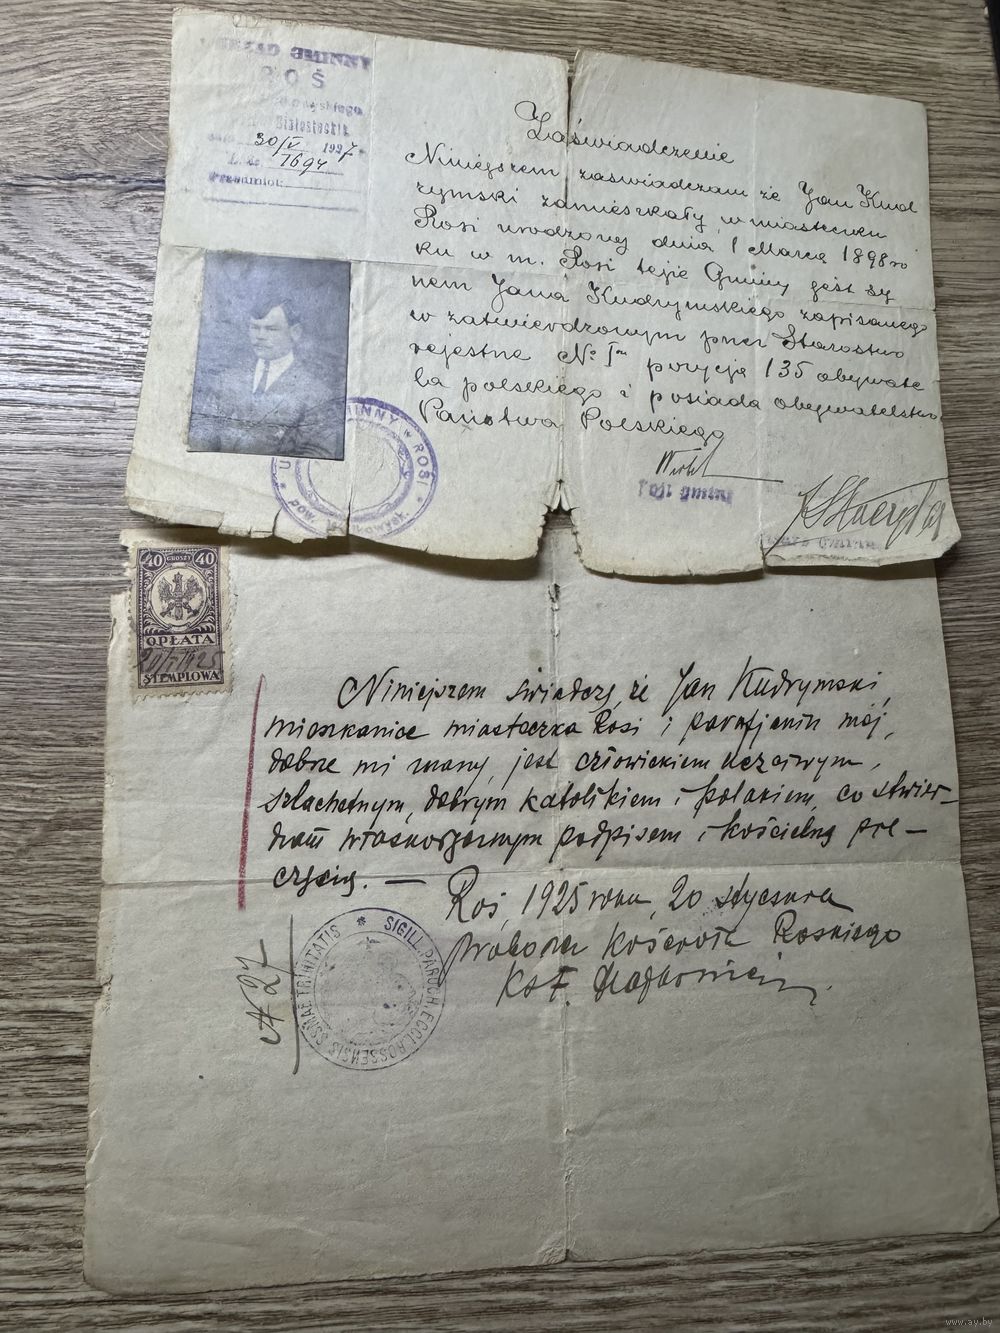 URZĄD GMINNY
ROŚ
Białostockie
30/V 1927
L. dz. 1694
Przedmiot:
Zaświadczenie
Niniejszem zaświadczam że Jan Kud
rymski zamieszkały w miasteczku
Rosi urodzony dnia 1 Marca 1898 ro
ku w m. Rosi tejże Gminy jest sy
nem Jana Kudrymskiego zapisanego
w zatwierdzonym przez Starostwo
rejestrze № I pozycja 135 obywate
la polskiego i posiada obywatelstwo
Państwa Polskiego
Wójt gminy
URZĄD GMINNY w ROSI * pow. Wołkowysk.
40 GROSZY 40
OPŁATA
20/I 1925
STEMPLOWA
Niniejszem świadczę, że Jan Kudrymski,
mieszkaniec miasteczka Rosi i parafjanin mój,
dobrze mi znany, jest człowiekiem uczciwym,
szlachetnym, dobrym katolikiem i polakiem, co stwier-
dzam własnoręcznym podpisem i kościelną pie-
częcią. —
Roś, 1925 roku, 20 stycznia
Proboszcz Kościoła Roskiego
Ks F.
№ 27
* SIGILL. PAROCH. ECCL. ROSSENSIS SSMAE TRINITATIS
www.ay.by